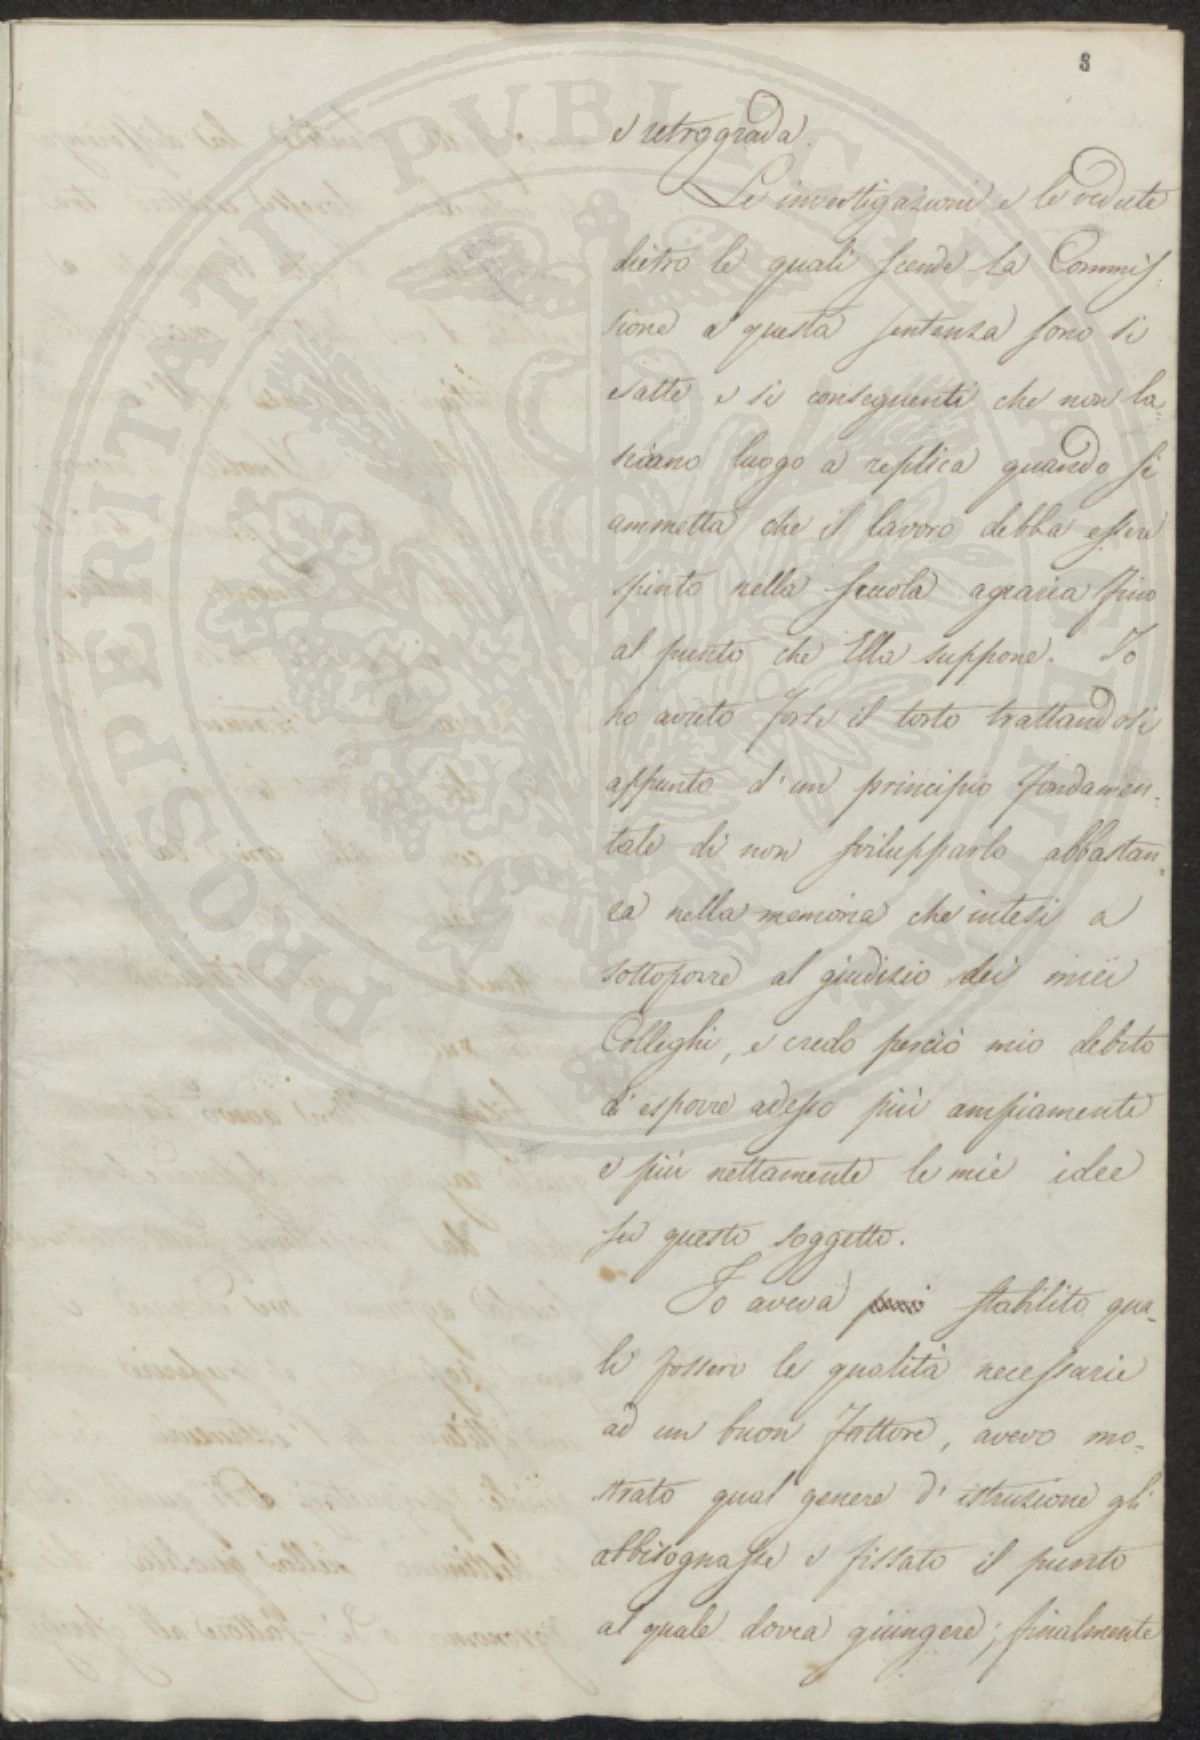 3
e retrograda.
Le investigazioni e le vedute
dietro le quali scende la Commis-
sione a questa sentenza sono sì
esatte e sì conseguenti che non la-
sciano luogo a replica quando si
ammetta che il lavoro debba essere
spinto nella scuola agraria fino
al punto che Ella suppone. Io
ho avuto forse il torto trattandosi
appunto d'un principio fondamen-
tale di non svilupparlo abbastan-
za nella memoria che intesi a
sottoporre al giudizio dei miei
Colleghi, e credo perciò mio debito
di esporre adesso più ampiamente
e più nettamente le mie idee
su questo soggetto.
Io aveva stabilito qua-
li fossero le qualità necessarie
ad un buon fattore, avevo mo-
strato qual genere d'istruzione gli
abbisognasse e fissato il punto
al quale dovea giungere; finalmente
PROSPERITATI PUBLICAE